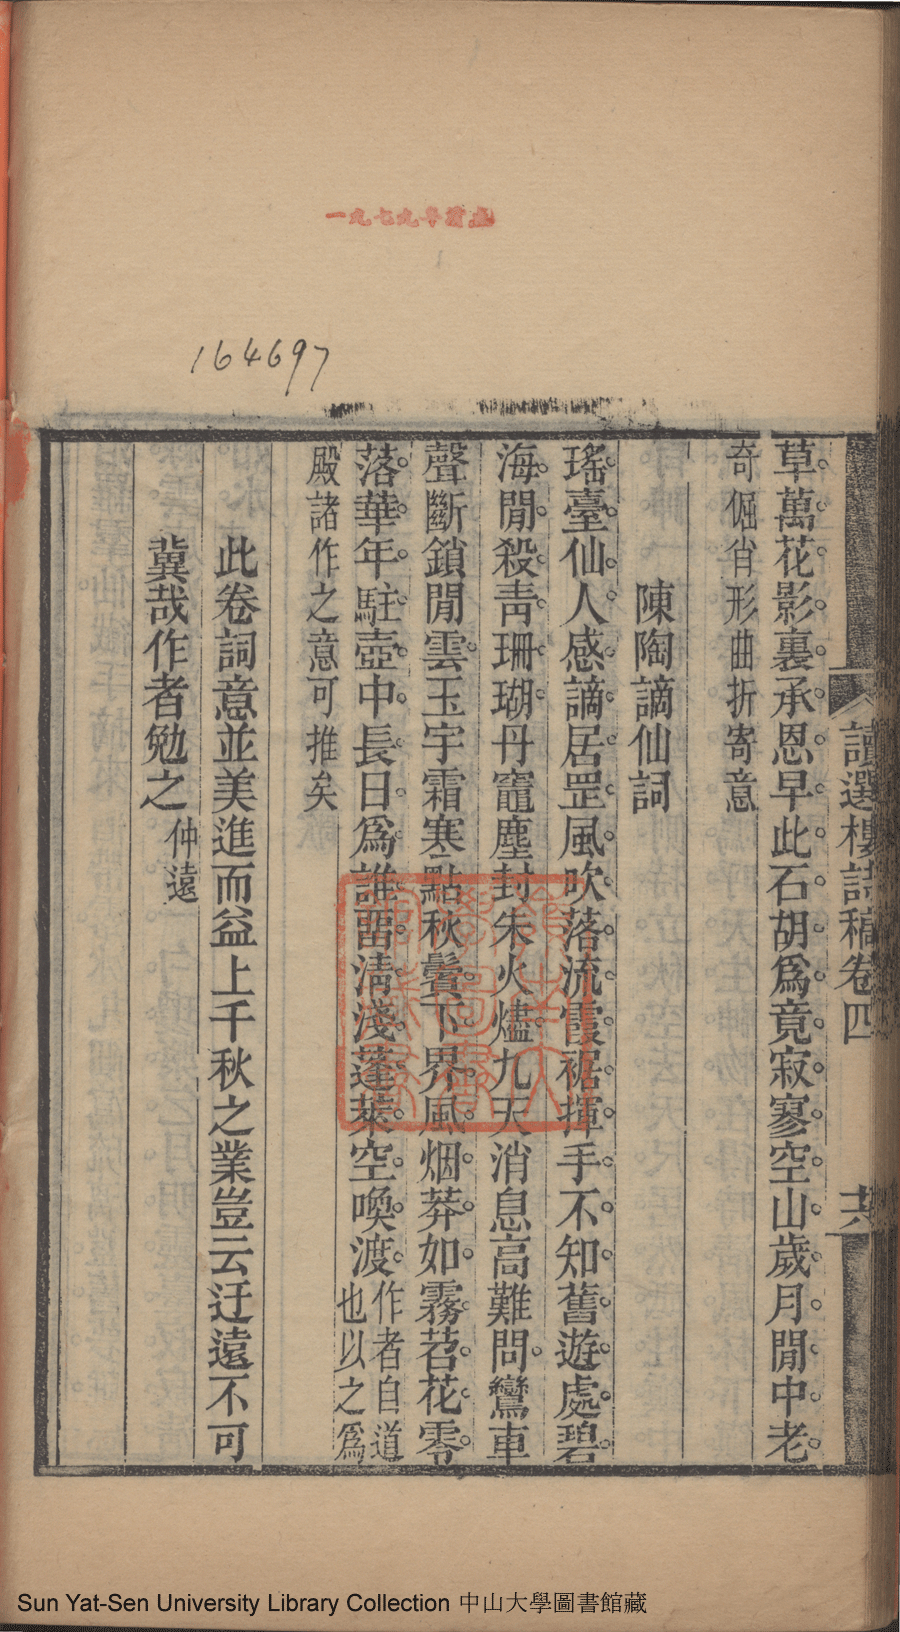 一九七九年清点
164697
讀選樓詩稿卷四
草萬花影裏承恩早此石胡爲竟寂寥空山歲月閒中老
奇倔肖形曲折寄意
陳陶謫仙詞
瑤臺仙人感謫居罡風吹落流霞裾揮手不知舊遊處碧
海閒殺青珊瑚丹竈塵封朱火燼九天消息高難問鸞車
聲斷鎖閒雲玉宇霜寒點秋鬢下界風烟莽如霧苕花零
落華年駐壺中長日爲誰畱淸淺蓬萊空喚渡作者自道
也以之爲
殿諸作之意可推矣
此卷詞意並美進而益上千秋之業豈云迂遠不可
冀哉作者勉之仲遠
Sun Yat-Sen University Library Collection 中山大學圖書館藏